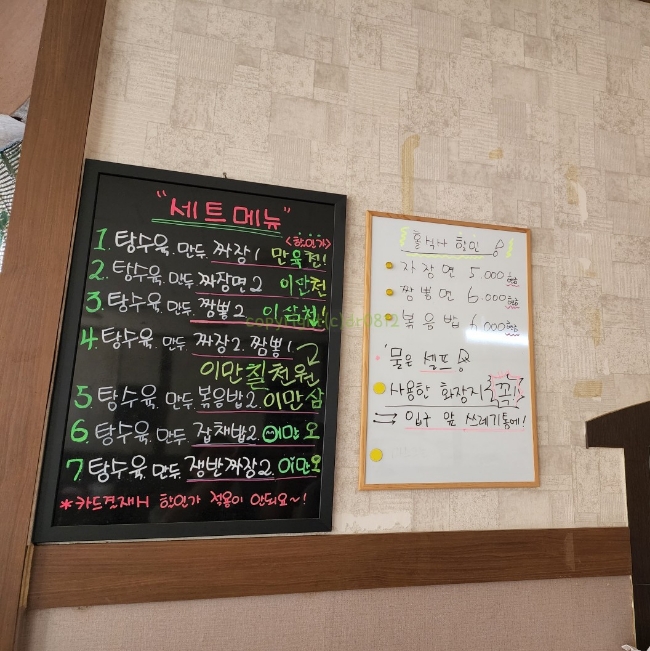 "세트메뉴"
<할인가>
1. 탕수육. 만두. 짜장 1 만육천!
2. 탕수육. 만두. 짜장면 2 이만천
3. 탕수육. 만두. 짬뽕 2 이삼천!
4. 탕수육. 만두. 짜장2. 짬뽕1
이만칠천원
5. 탕수육. 만두. 볶음밥2. 이만삼
6. 탕수육. 만두. 잡채밥2. 이만오
7. 탕수육. 만두. 쟁반짜장2. 이만오
*카드결재시 할인가 적용이 안되요~!
홀식사 할인
짜장면 5.000
짬뽕면 6.000
볶음밥 6.000
물은 셀프
사용한 화장지 꼭!
입구 앞 쓰레기통에!
copyright(c)dr0812